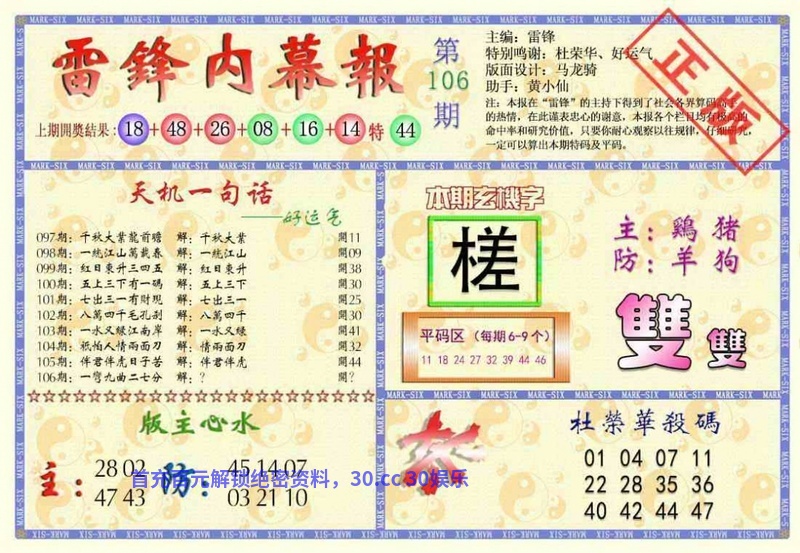 MARK-SIX
雷鋒内幕報
第106期
主编：雷锋
特别鸣谢：杜荣华、好运气
版面设计：马龙骑
助手：黄小仙
注：本报在“雷锋”的主持下得到了社会各界算码高手
的热情，在此谨表忠心的谢意，本报各个栏目均有极高的
命中率和研究价值，只要你耐心观察以往规律，仔细研究，
一定可以算出本期特码及平码。
正版
上期開獎結果：18+48+26+08+16+14特44
天机一句话
——好运气
097期：千秋大業龍前瞻 解：千秋大業 開11
098期：一統江山萬載春 解：一統江山 開09
099期：紅日東升三四五 解：紅日東升 開38
100期：五上三下有一碼 解：五上三下 開30
101期：七出三一有财現 解：七出三一 開25
102期：八萬四千毛孔剖 解：八萬四千 開30
103期：一水又綠江南岸 解：一水又綠 開41
104期：祇怕人情兩面刀 解：情兩面刀 開32
105期：伴君伴虎日子苦 解：伴君伴虎 開44
106期：一彎九曲二七分 解：？ 開？
本期玄機字
槎
主：鷄 猪
防：羊 狗
平码区（每期6-9个）
11 18 24 27 32 39 44 46
雙 雙
版主心水
主：28 02 防：45 14 07
47 43 03 21 10
首充百元解锁绝密资料，30.cc 30娱乐
灰
杜榮華殺碼
01 04 07 11
22 28 35 36
40 42 44 47